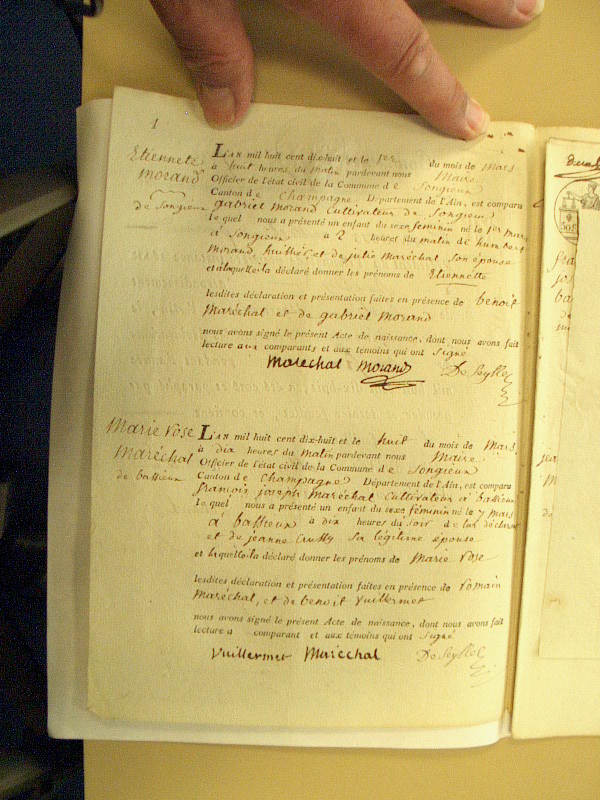 1
Etiennete
Morand
de Songieux
L'an mil huit cent dix-huit et le 1er du mois de Mars
à huit heures du matin pardevant nous Maire
Officier de l'état civil de la Commune de Songieux
Canton de Champagne Département de l'Ain, est comparu
gabriel Morand Cultivateur de Songieux
lequel nous a présenté un enfant du sexe feminin né le 1er Mars
à Songieux à 2 heures du matin de humbert
Morand huillier, et de julie Maréchal son épouse
et a laquelle il a déclaré donner les prénoms de Etiennette
lesdites déclaration et présentation faites en présence de benoit
Maréchal et de gabriel Morand
nous avons signé le présent Acte de naissance, dont nous avons fait
lecture aux comparants et aux témoins qui ont signé
Maréchal Morand DeSeyssel
Marie Rose
Maréchal
de bassieux
L'an mil huit cent dix-huit et le huit du mois de Mars
à dix heures du matin pardevant nous Maire
Officier de l'état civil de la Commune de Songieux
Canton de Champagne Département de l'Ain, est comparu
françois joseph Maréchal Cultivateur à bassieux
lequel nous a présenté un enfant du sexe féminin né le 7 Mars
à bassieux à dix heures du soir de lui déclarant
et de jeanne sa légitime épouse
et laquelle il a déclaré donner les prénoms de Marie Rose
lesdites déclaration et présentation faites en présence de romain
Maréchal, et de benoit Vuillermet
nous avons signé le présent Acte de naissance, dont nous avons fait
lecture a comparant et aux témoins qui ont signé
Vuillermet Maréchal DeSeyssel